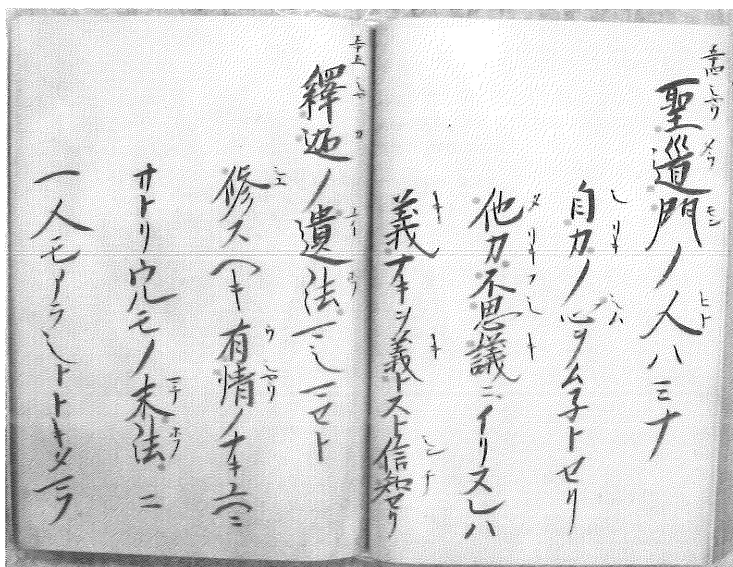 聖道門ノ人ハミナ
自力ノ心ヲム子トセリ
他力不思議ニイリヌレハ
義ナキヲ義トスト信知セリ
釋迦ノ遺法マシマセト
修スヘキ有情ノナキユヘニ
サトリウルモノ末法ニ
一人モアラシトトキタマフ